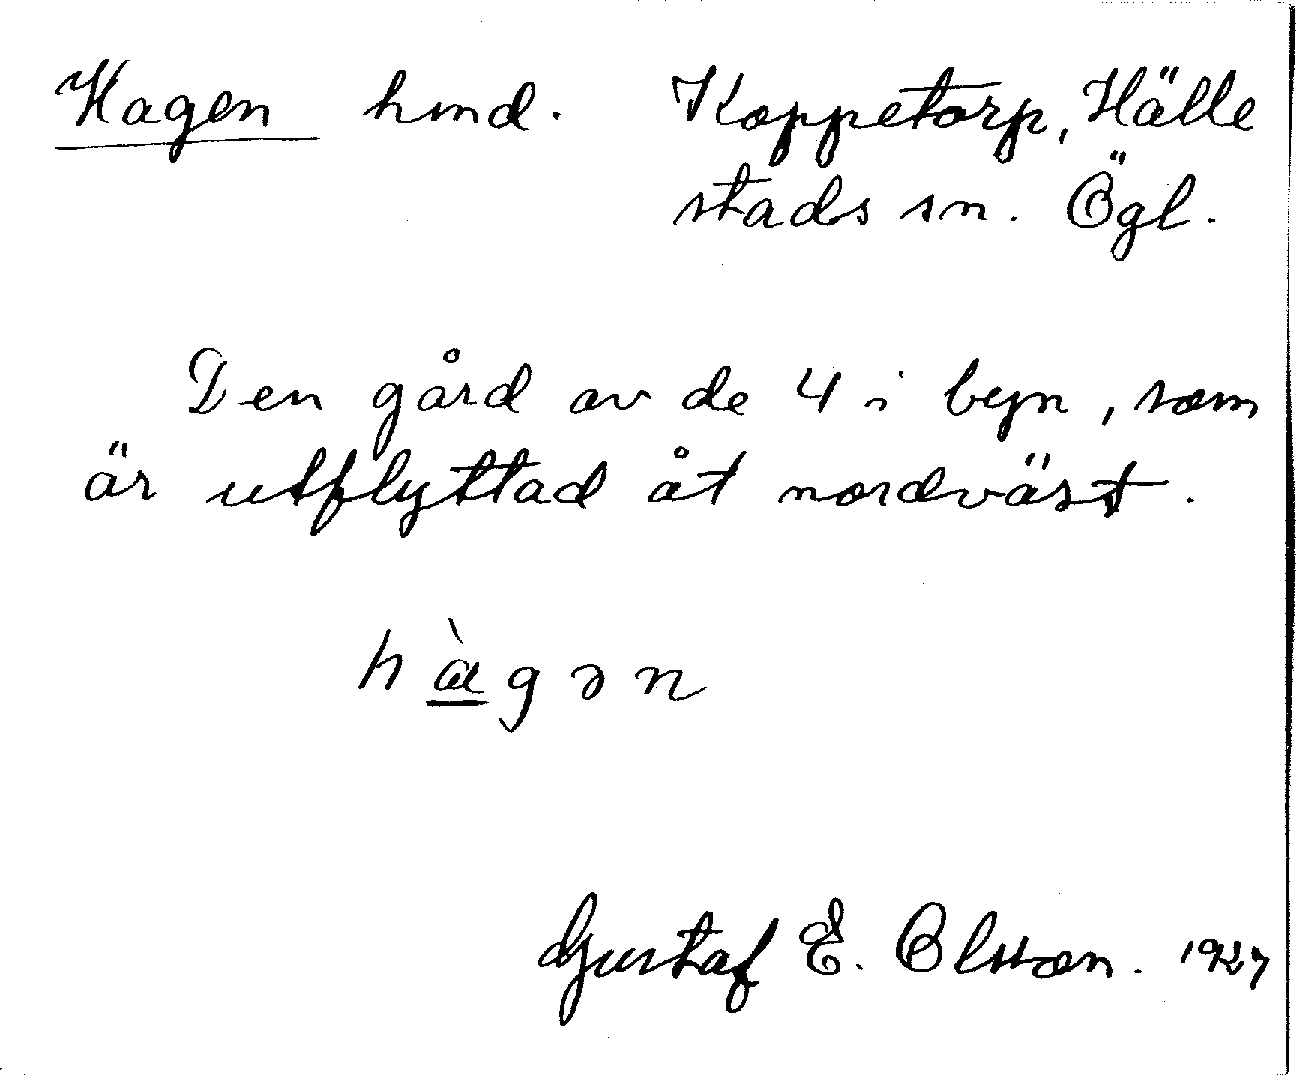 Hagen hmd. Koppetorp, Hälle
stads sn. Ögl.
Den gård av de 4 i byn, som
är utflyttad åt nordväst.
hàgən
Gustaf E. Olsson. 1927